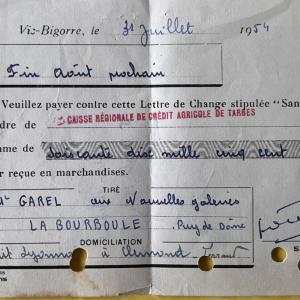 Vic-Bigorre, le 31 Juillet 1954
Fin Août prochain
Veuillez payer contre cette Lettre de Change stipulée "San
rdre de CAISSE RÉGIONALE DE CRÉDIT AGRICOLE DE TARBES
me de Soixante dix mille cinq cent
r reçue en marchandises.
TIRÉ
GAREL aux Nouvelles galeries
LA BOURBOULE Puy de Dôme
DOMICILIATION
it Lyonnais à Clermond Ferrand